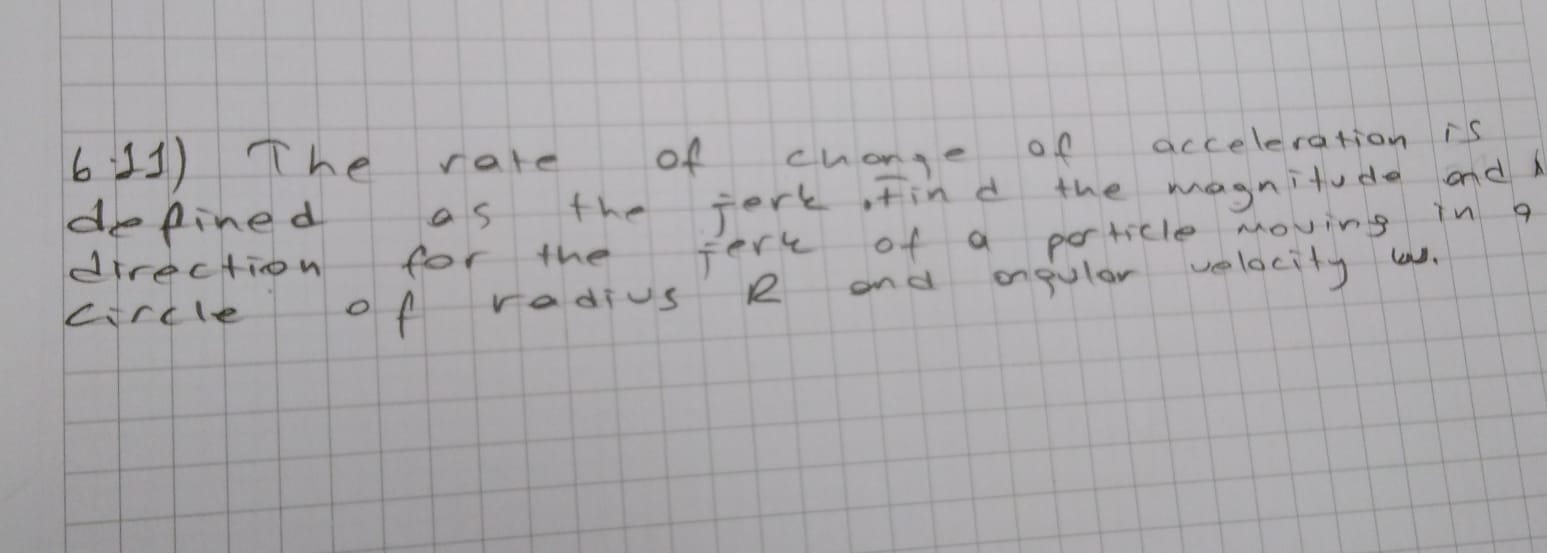 6.11) The rate of change of acceleration is
defined as the jerk. Find the magnitude and
direction for the jerk of a particle moving in a
circle of radius R and angular velocity w.